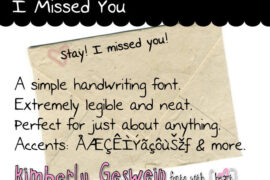 I Missed You
Stay! I missed you!
A simple handwriting font.
Extremely legible and neat.
Perfect for just about anything.
Kimberly Geswein fonts with